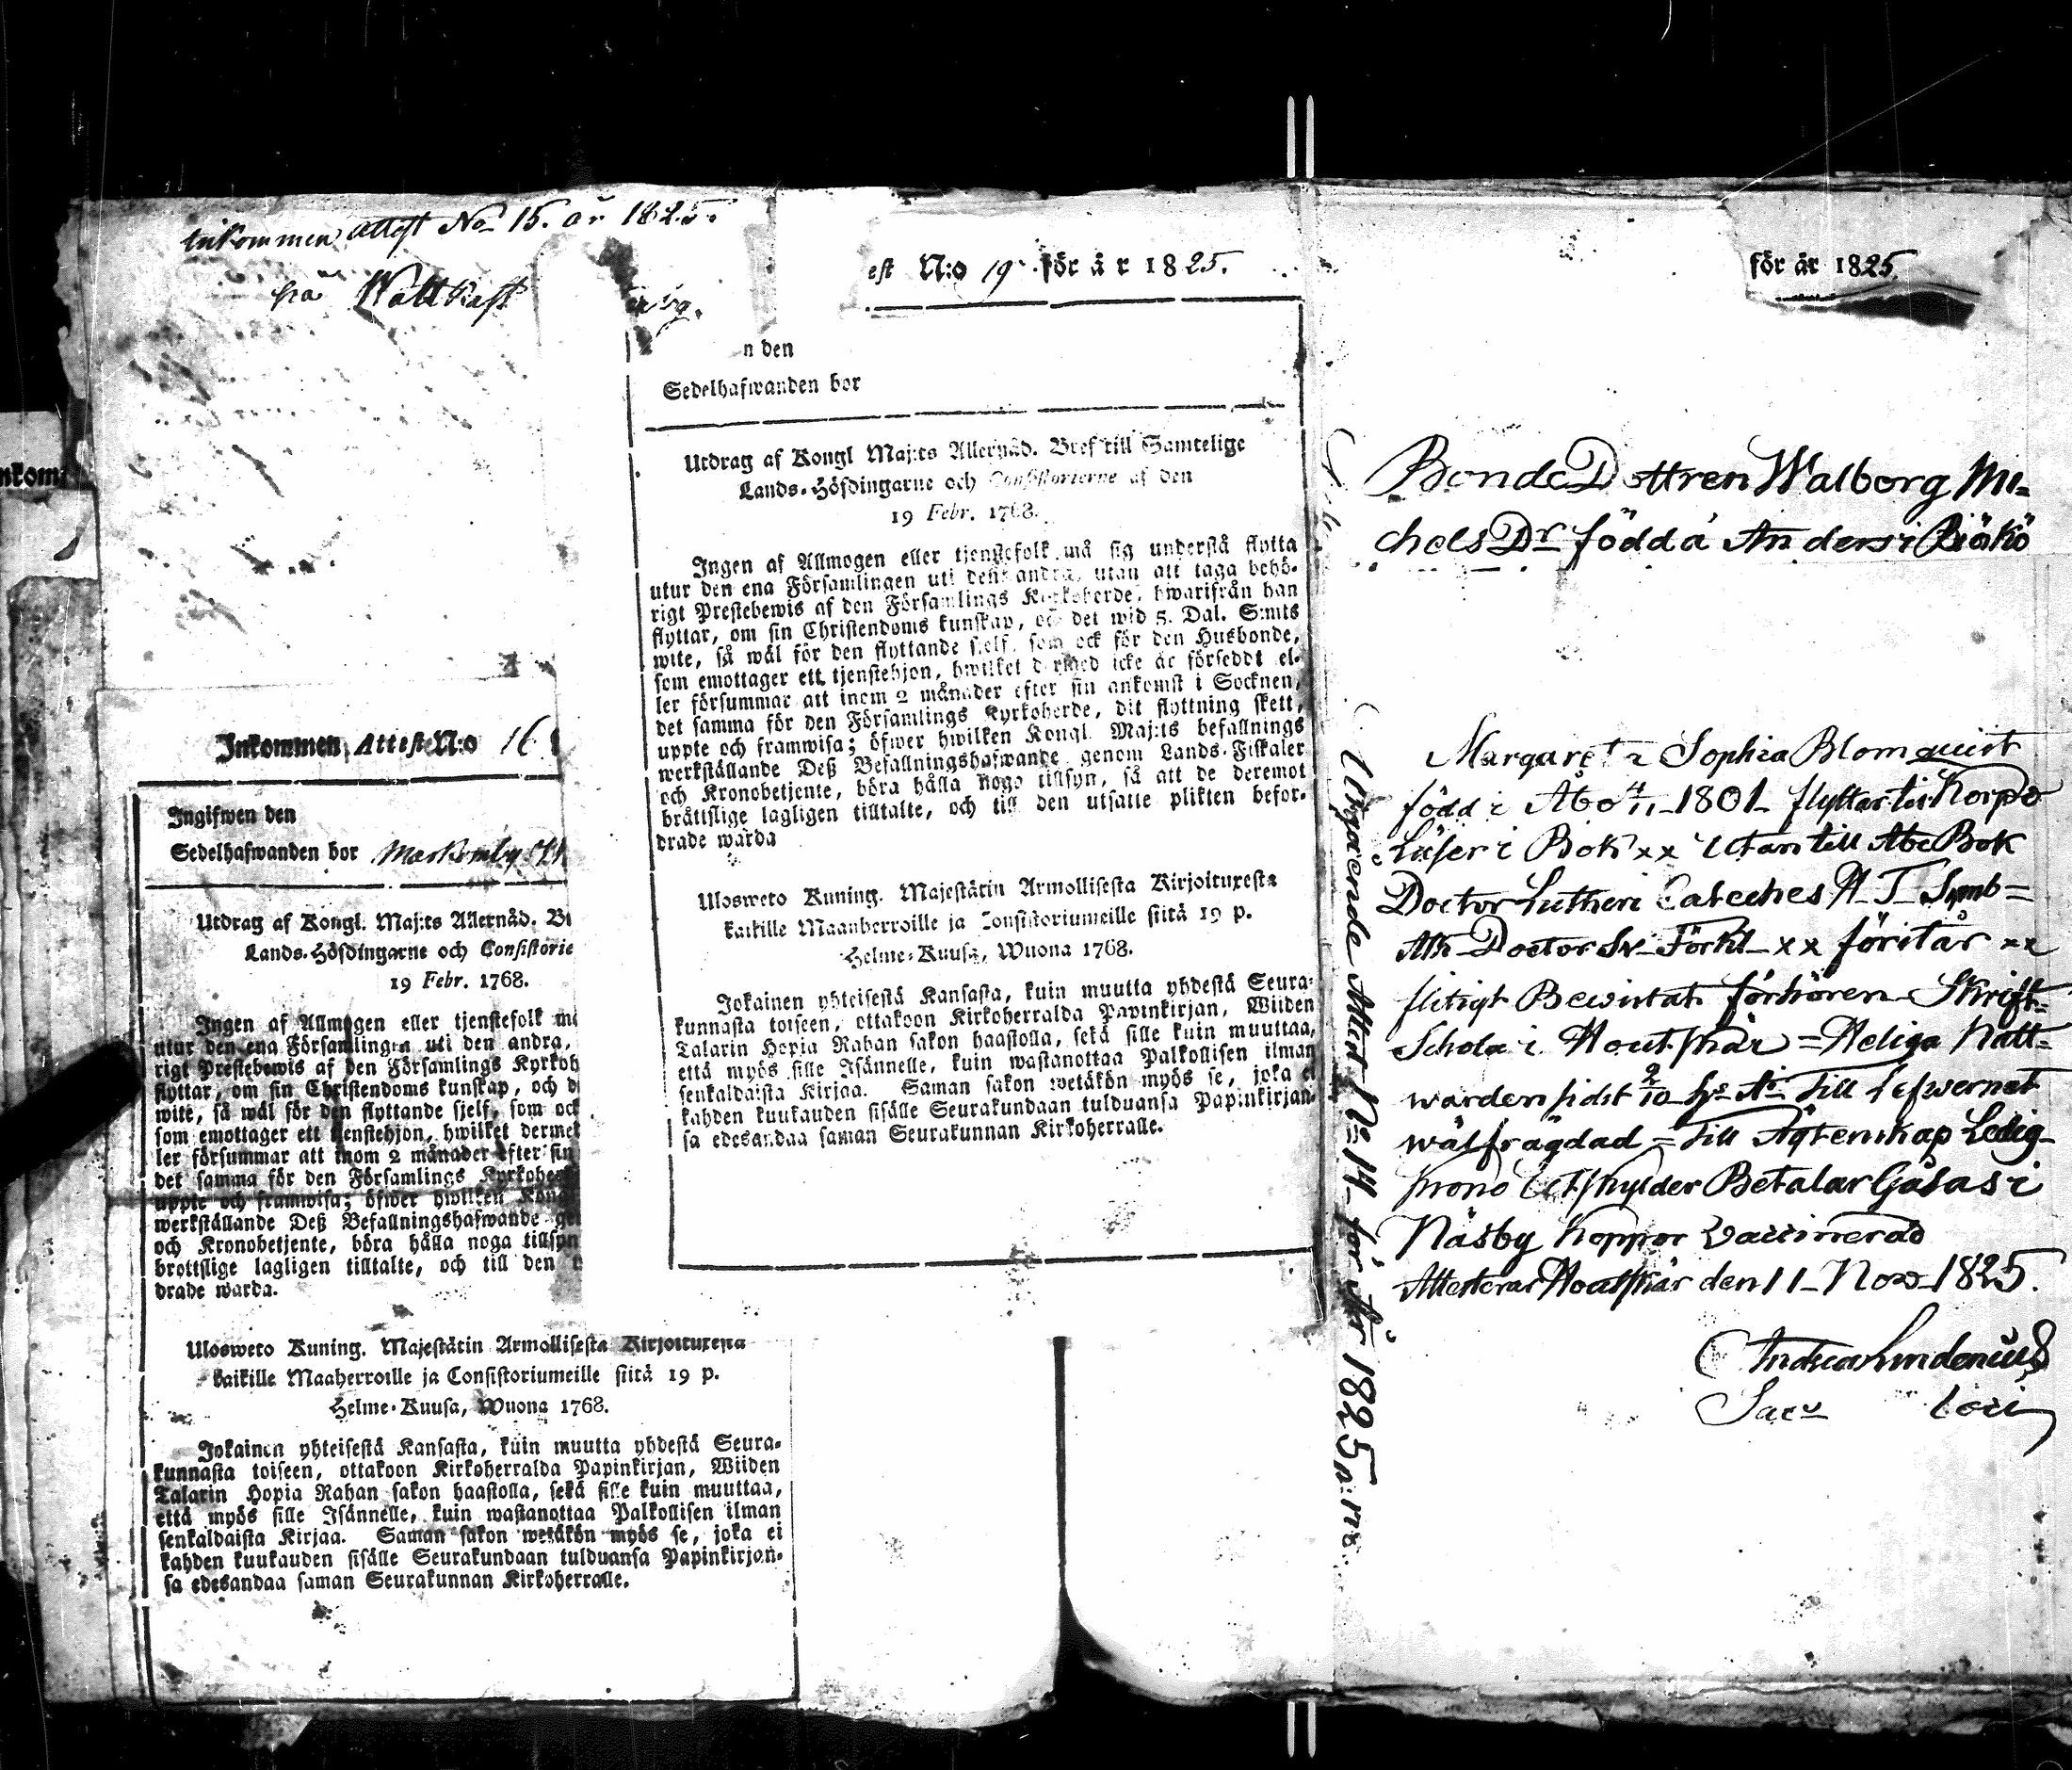 inkommen attest No 15. år 1825.
från Wålt
Inkommen Attest N:o 16
Ingifwen den
Sedelhafwanden bor
Utdrag af Kongl. Maj:ts Allernåd.
Lands-Höfdingarne och Consistorie
19 Febr. 1768.
Ingen af Allmogen eller tjenstefolk
utur den ena Församlingen uti den andra,
rigt Prestebewis af den Församlings
flyttar, om sin Christendoms kunskap, och
wite, så wäl för den flyttande sjelf, som ock
som emottager ett tjenstehjon, hwilket
ler försummar att inom 2 månader efter sin
det samma för den Församlings
uppte och framwisa; öfwer hwilken
werkställande Deß Befallningshafwande
och Kronobetjente, böra hålla noga tillsyn
brottslige lagligen tilltalte, och till den
drade warda.
Ulosweto Kuning. Majestätin Armollisesta Kirjoituxesta
kaikille Maaherroille ja Consistoriumeille siitä 19 p.
Helme-Kuusa, Wuona 1768.
Jokainen yhteisestä Kansasta, kuin muutta yhdestä Seura-
kunnasta toiseen, ottakoon Kirkoherralda Papinkirjan, Wiiden
Talarin Hopia Rahan sakon haastolla, sekä sille kuin muuttaa,
että myös sille Isännelle, kuin wastanottaa Palkollisen ilman
senkaldaista Kirjaa. Saman sakon wetäkön myös se, joka ei
kahden kuukauden sisälle Seurakundaan tulduansa Papinkirjan-
sa edesandaa saman Seurakunnan Kirkoherralle.
est N:o 19 för år 1825.
n den
Sedelhafwanden bor
Utdrag af Kongl Maj:ts Allernåd. Bref till Samtelige
Lands-Höfdingarne och Consistorierne af den
19 Febr. 1768.
Ingen af Allmogen eller tjenstefolk må sig understå flytta
utur den ena Församlingen uti den andra, utan att taga behö-
rigt Prestebewis af den Församlings Kyrkoherde, hwarifrån han
flyttar, om sin Christendoms kunskap, och det wid 5. Dal. S:mts
wite, så wäl för den flyttande sjelf, som ock för den Husbonde,
som emottager ett tjenstehjon, hwilket dermed icke är försedbt el-
ler försummar att inom 2 månader efter sin ankomst i Socknen,
det samma för den Församlings Kyrkoherde, dit flyttning skett,
uppte och framwisa; öfwer hwilken Kongl. Maj:ts befallnings
werkställande Deß Befallningshafwande genom Lands-Fiskaler
och Kronobetjente, böra hålla noga tillsyn, så att de deremot
bråttslige lagligen tilltalte, och till den utsatte plikten befor-
drade warda
Ulosweto Kuning. Majestätin Armollisesta Kirjoituxesta
kaikille Maanherroille ja Consistoriumeille siitä 19 p.
Helme-Kuusa, Wuona 1768.
Jokainen yhteisestä Kansasta, kuin muutta yhdestä Seura-
kunnasta toiseen, ottakoon Kirkoherralda Papinkirjan, Wiiden
Talarin Hopia Rahan sakon haastolla, sekä sille kuin muuttaa,
että myös sille Isännelle, kuin wastanottaa Palkollisen ilman
senkaldaista Kirjaa. Saman sakon wetäkön myös se, joka ei
kahden kuukauden sisälle Seurakundaan tulduansa Papinkirjan-
sa edesandaa saman Seurakunnan Kirkoherralle.
för år 1825
Bonde Dottren Walborg Mi-
chels Dr född å Anders i Biökö
Utgående Attest No 14 för År 1825
Margareta Sophia Blomquist
född i Åbo 4/11 1801 flyttar till Korpo
Läser i Bok xx Utan till Abc Bok
Doctor Lutheri Cateches H T Symb=
Ath Doctor Sv Förkl xx förstår xx
flitigt Bewistat förhören Skrift-
Schola i Houtskär = Heliga Natt=
warden sidst 2/10 Till Lefwernet
wälfrägdad = Till Ägtenskap Ledig
Krono Utskylder Betalar Gåsas i
Näsby Koppor Vaccinerad
Attesterar Houtskär den 11 Nov 1825.
Andreas Lindenius
Sac loci